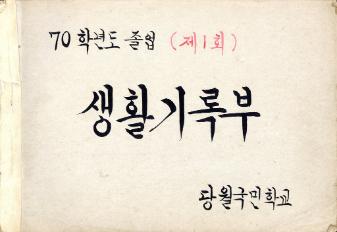 70 학년도 졸업 (제1회)
생활기록부
당월국민학교